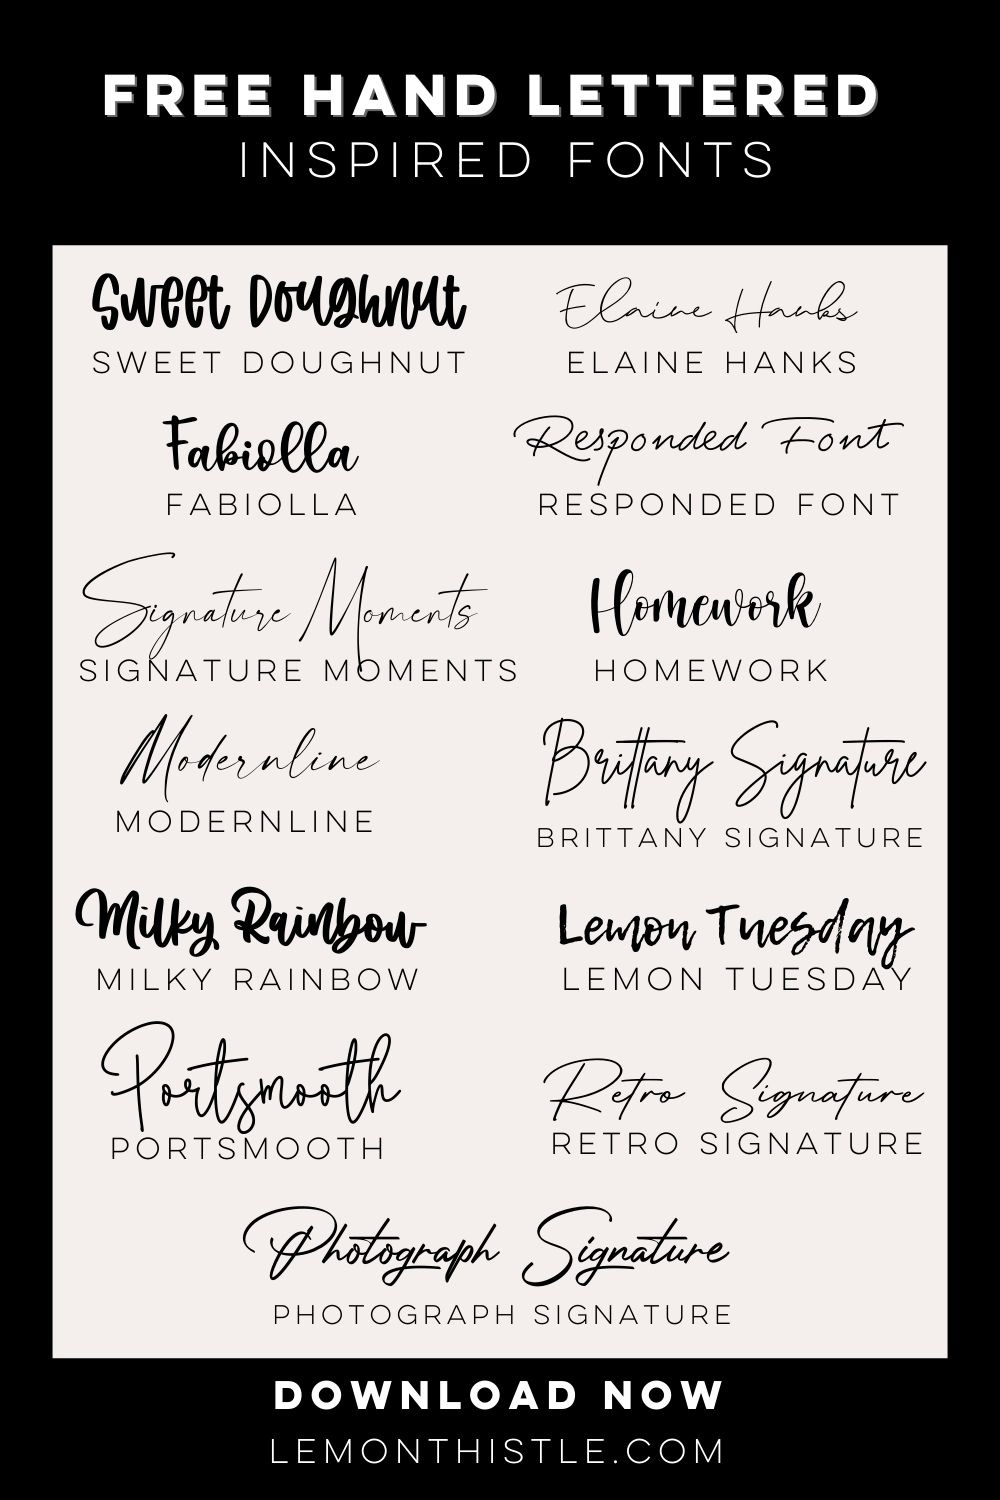 FREE HAND LETTERED
INSPIRED FONTS
Sweet Doughnut
SWEET DOUGHNUT
Elaine Hanks
ELAINE HANKS
Fabiolla
FABIOLLA
Responded Font
RESPONDED FONT
Signature Moments
SIGNATURE MOMENTS
Homework
HOMEWORK
Modernline
MODERNLINE
Brittany Signature
BRITTANY SIGNATURE
Milky Rainbow
MILKY RAINBOW
Lemon Tuesday
LEMON TUESDAY
Portsmooth
PORTSMOOTH
Retro Signature
RETRO SIGNATURE
Photograph Signature
PHOTOGRAPH SIGNATURE
DOWNLOAD NOW
LEMONTHISTLE.COM